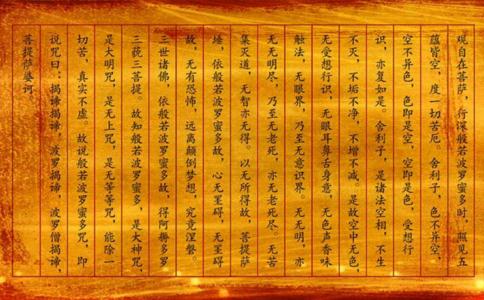 观自在菩萨，行深般若波罗蜜多时，照见五
蕴皆空，度一切苦厄。舍利子，色不异空，
空不异色，色即是空，空即是色，受想行
识，亦复如是。舍利子，是诸法空相，不生
不灭，不垢不净，不增不减。是故空中无色，
无受想行识，无眼耳鼻舌身意，无色声香味
触法，无眼界，乃至无意识界。无无明，亦
无无明尽，乃至无老死，亦无老死尽。无苦
集灭道，无智亦无得。以无所得故，菩提萨
埵，依般若波罗蜜多故，心无罣碍，无罣碍
故，无有恐怖，远离颠倒梦想，究竟涅槃。
三世诸佛，依般若波罗蜜多故，得阿耨多罗
三藐三菩提。故知般若波罗蜜多，是大神咒，
是大明咒，是无上咒，是无等等咒，能除一
切苦，真实不虚。故说般若波罗蜜多咒，即
说咒曰：揭谛揭谛，波罗揭谛，波罗僧揭谛，
菩提萨婆诃。